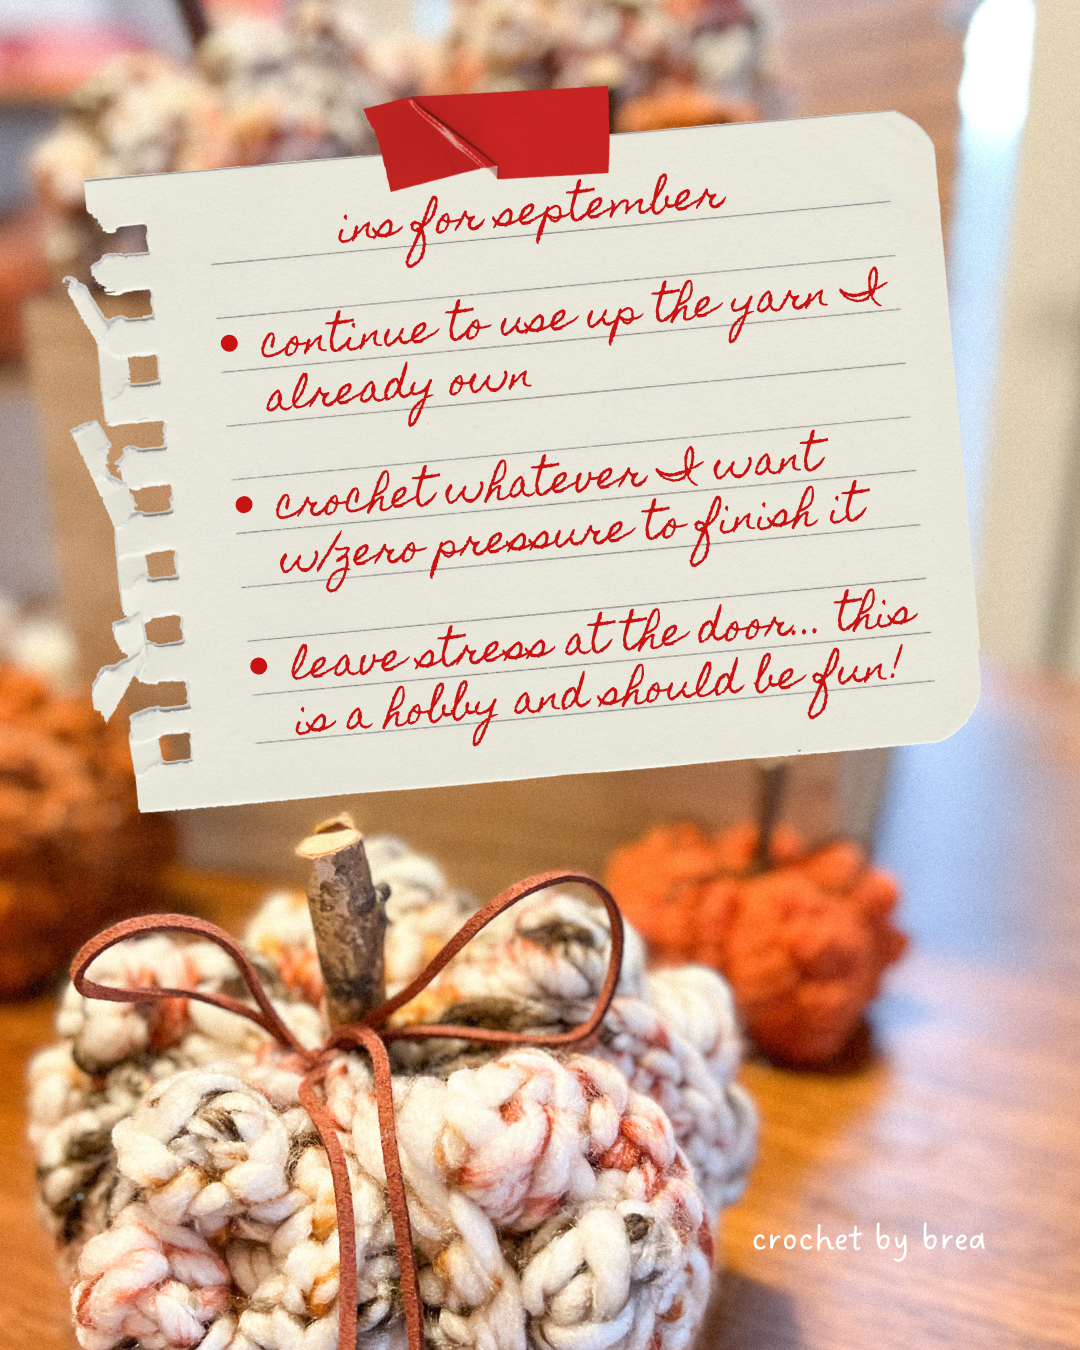 ins for september
continue to use up the yarn I
already own
crochet whatever I want
w/zero pressure to finish it
leave stress at the door... this
is a hobby and should be fun!
crochet by brea